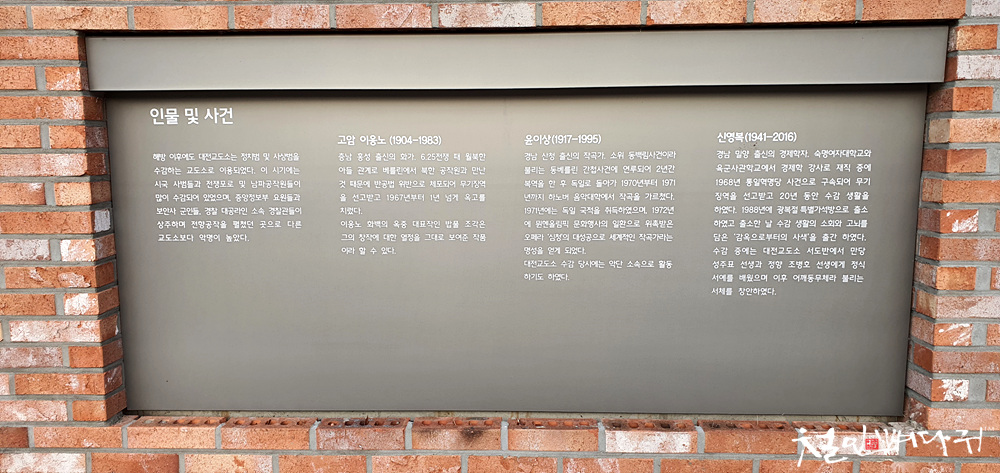 인물 및 사건
해방 이후에도 대전교도소는 정치범 및 사상범을
수감하는 교도소로 이용되었다. 이 시기에는
시국 사범들과 전쟁포로 및 남파공작원들이
많이 수감되어 있었으며, 중앙정보부 요원들과
보안사 군인들, 경찰 대공라인 소속 경찰관들이
상주하며 전향공작을 펼쳤던 곳으로 다른
교도소보다 악명이 높았다.
고암 이응노 (1904-1983)
충남 홍성 출신의 화가. 6.25전쟁 때 월북한
아들 관계로 베를린에서 북한 공작원과 만난
것 때문에 반공법 위반으로 체포되어 무기징역
을 선고받고 1967년부터 1년 넘게 옥고를
치렀다.
이응노 화백의 옥중 대표적인 밥풀 조각은
그의 창작에 대한 열정을 그대로 보여준 작품
이라 할 수 있다.
윤이상(1917-1995)
경남 산청 출신의 작곡가. 소위 동백림사건이라
불리는 동베를린 간첩사건에 연루되어 2년간
복역을 한 후 독일로 돌아가 1970년부터 1971
년까지 하노버 음악대학에서 작곡을 가르쳤다.
1971년에는 독일 국적을 취득하였으며, 1972년
에 뮌헨올림픽 문화행사의 일환으로 위촉받은
오페라 '심청'의 대성공으로 세계적인 작곡가라는
명성을 얻게 되었다.
대전교도소 수감 당시에는 악단 소속으로 활동
하기도 하였다.
신영복(1941-2016)
경남 밀양 출신의 경제학자. 숙명여자대학교와
육군사관학교에서 경제학 강사로 재직 중에
1968년 통일혁명당 사건으로 구속되어 무기
징역을 선고받고 20년 동안 수감 생활을
하였다. 1988년에 광복절 특별가석방으로 출소
하였고 출소한 날 수감 생활의 소회와 고뇌를
담은 '감옥으로부터의 사색'을 출간 하였다.
수감 중에는 대전교도소 서도반에서 만당
성주표 선생과 정향 조병호 선생에게 정식
서예를 배웠으며 이후 어깨동무체라 불리는
서체를 창안하였다.